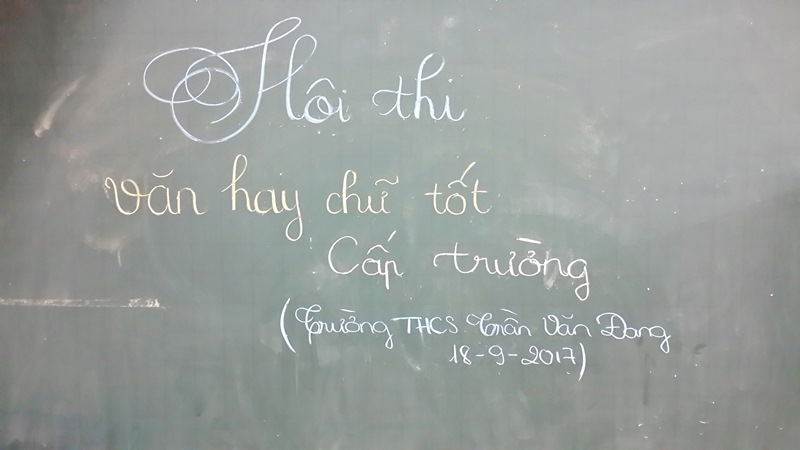 Hội thi
văn hay chữ tốt
Cấp trường
(Trường THCS Trần Văn Đang
18-9-2017)